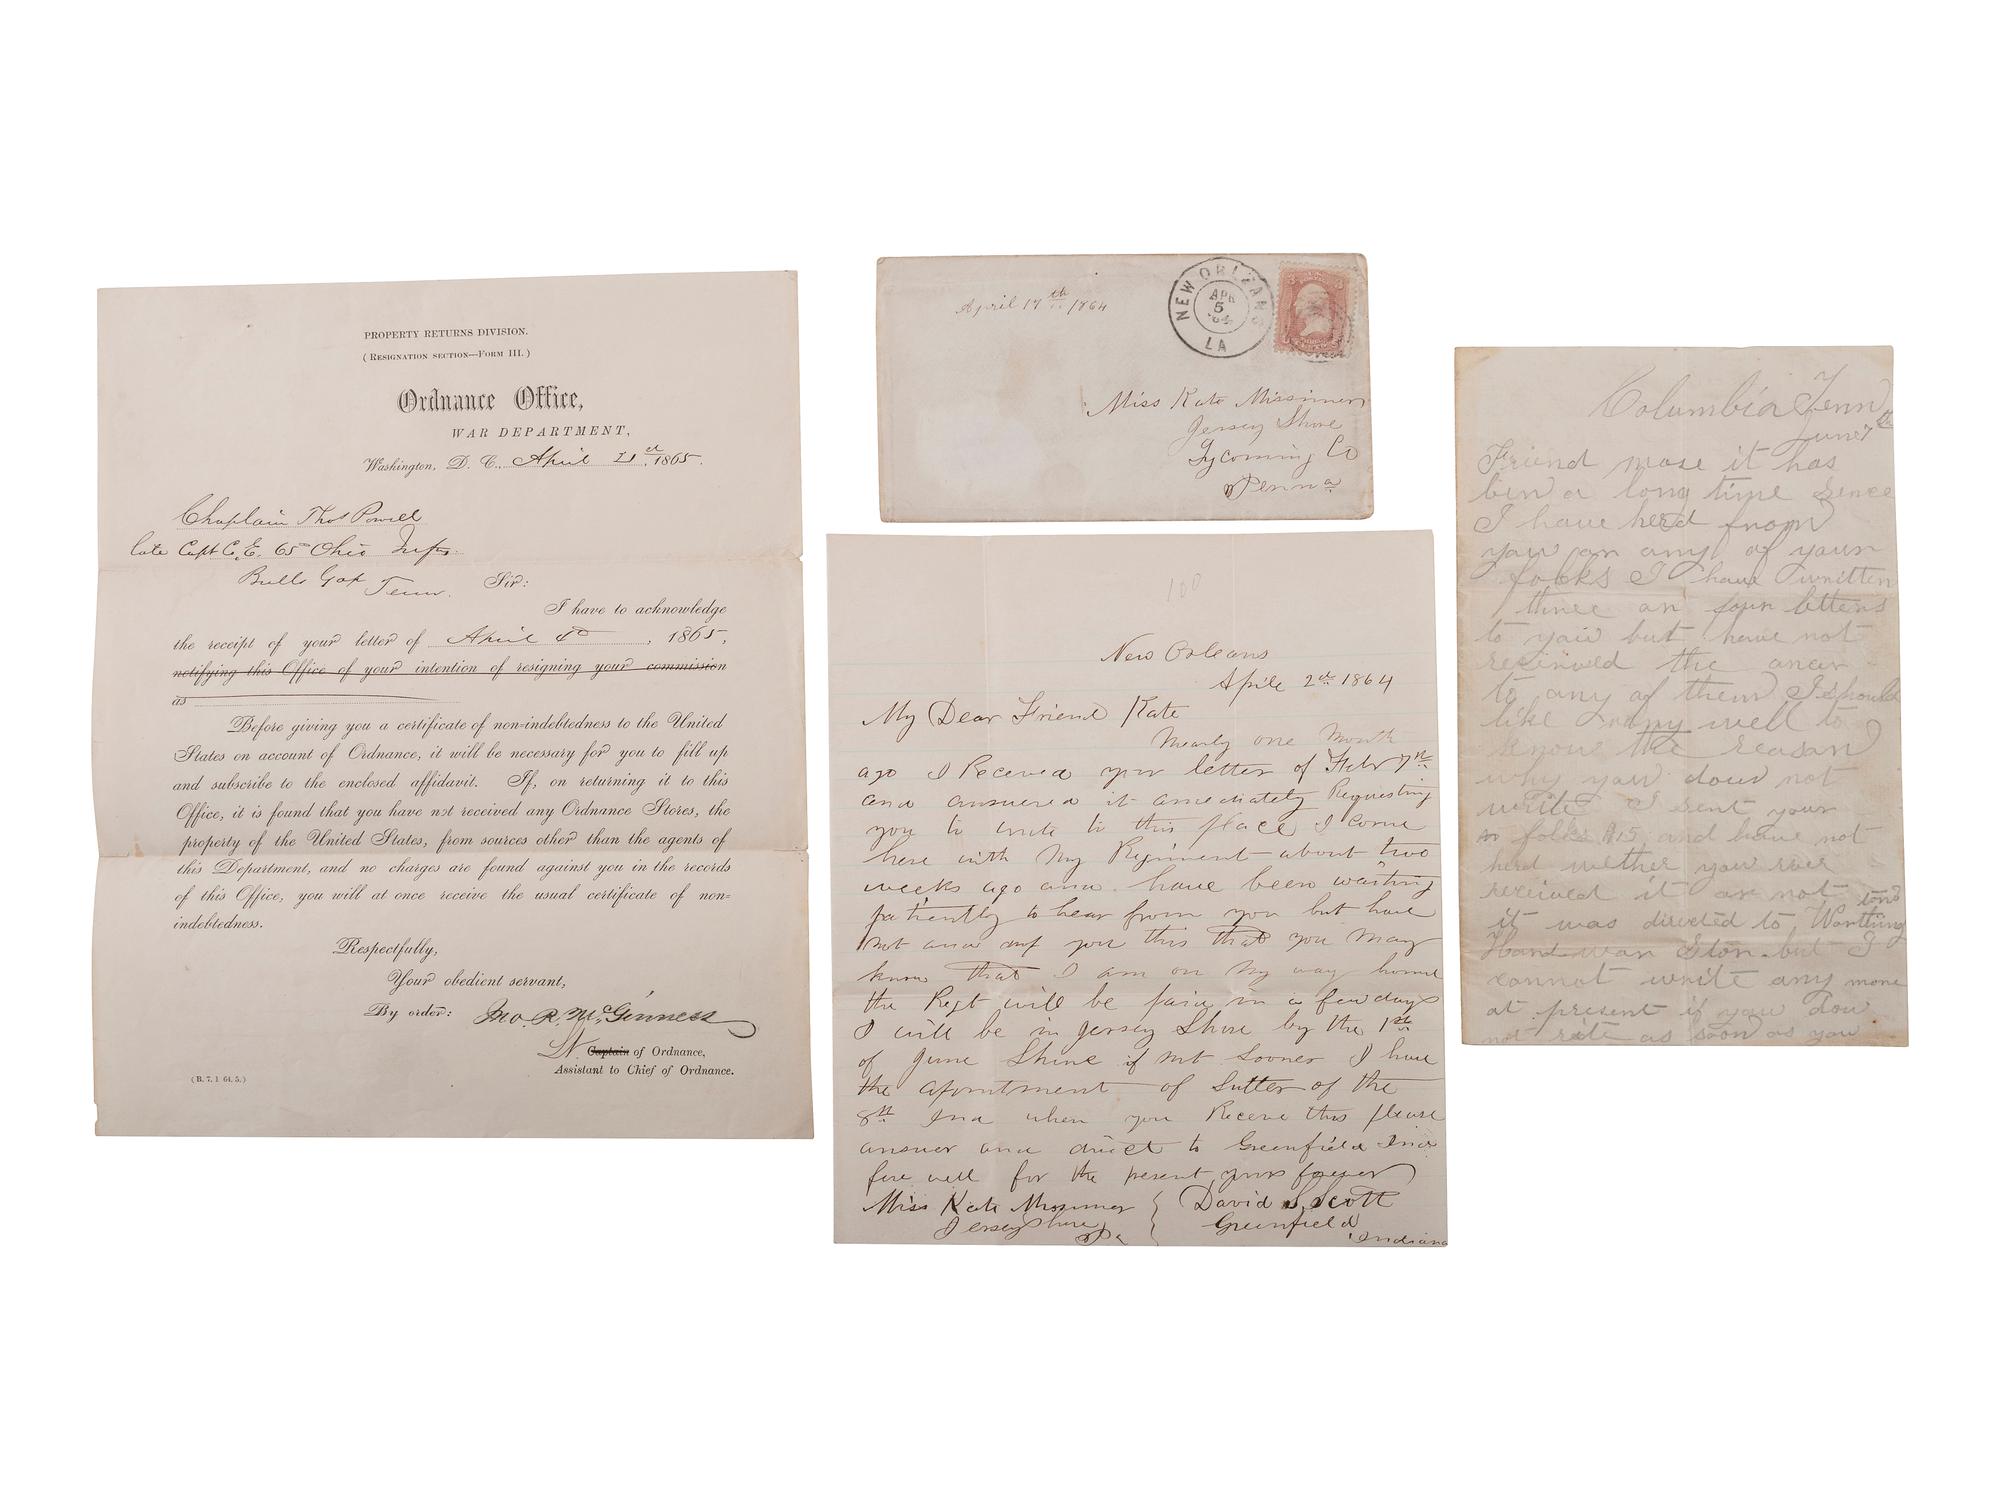 PROPERTY RETURNS DIVISION.
(RESIGNATION SECTION—FORM III.)
Ordnance Office,
WAR DEPARTMENT,
Washington, D. C., April 21st, 1865.
Chaplain Thos Powell
late Capt Co, E. 65 Ohio Infy.
Bulls Gap Tenn. Sir:
I have to acknowledge
the receipt of your letter of April 4th, 1865,
notifying this Office of your intention of resigning your commission
as
Before giving you a certificate of non-indebtedness to the United
States on account of Ordnance, it will be necessary for you to fill up
and subscribe to the enclosed affidavit. If, on returning it to this
Office, it is found that you have not received any Ordnance Stores, the
property of the United States, from sources other than the agents of
this Department, and no charges are found against you in the records
of this Office, you will at once receive the usual certificate of non-
indebtedness.
Respectfully,
Your obedient servant,
By order: Jno. R. McGinness
Lt. Captain of Ordnance,
Assistant to Chief of Ordnance.
(B. 7. 1 64. 5.)
April 17th 1864
NEW ORLEANS
APR
5
'64
LA
Miss Kate Missimer
Jersey Shore
Lycoming Co
Penna
100
New Orleans
Aprile 2d 1864
My Dear Friend Kate
Nearly one Month
ago I Receved your letter of Feb 7th
and answered it amediately Requesting
you to write to this place I come
here with My Regiment about two
weeks ago and have been waiting
patiently to hear from you but have
not and now you this that you May
know that I am on My way home
the Regt will be paid in a few days
I will be in Jersey Shore by the 1st
of June Shure if not sooner I have
the apointment of Sutler of the
8th Ind when you Receve this please
answer and direct to Greenfield Ind
fare well for the present yours forever
Miss Kate Missimer } David S Scott
Jersey Shore Greenfield
Pa Indiana
Columbia Tenn
June 7th
Friend mose it has
bin a long time sence
I have herd from
you or any of your
folks I have written
three or four letters
to you but have not
received the ancer
to any of them I should
like very well to
know the reason
why you dow not
write I sent your
folks $15 and have not
herd wether you ever
received it or not
it was directed to Worthing tons
Hard war Stor but I
cannot write any more
at present if you dow
not rite as soon as you